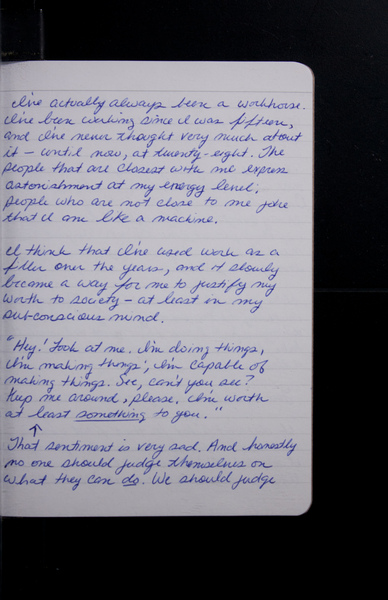 I've actually always been a workhorse.
I've been working since I was fifteen,
and I've never thought very much about
it — until now, at twenty-eight. The
people that are closest with me express
astonishment at my energy level;
people who are not close to me joke
that I am like a machine.
I think that I've used work as a
filler over the years, and it slowly
became a way for me to justify my
worth to society — at least in my
sub-conscious mind.
"Hey! Look at me. I'm doing things,
I'm making things; I'm capable of
making things. See, can't you see?
Keep me around, please. I'm worth
at least something to you."
↑
That sentiment is very sad. And honestly
no one should judge themselves on
what they can do. We should judge